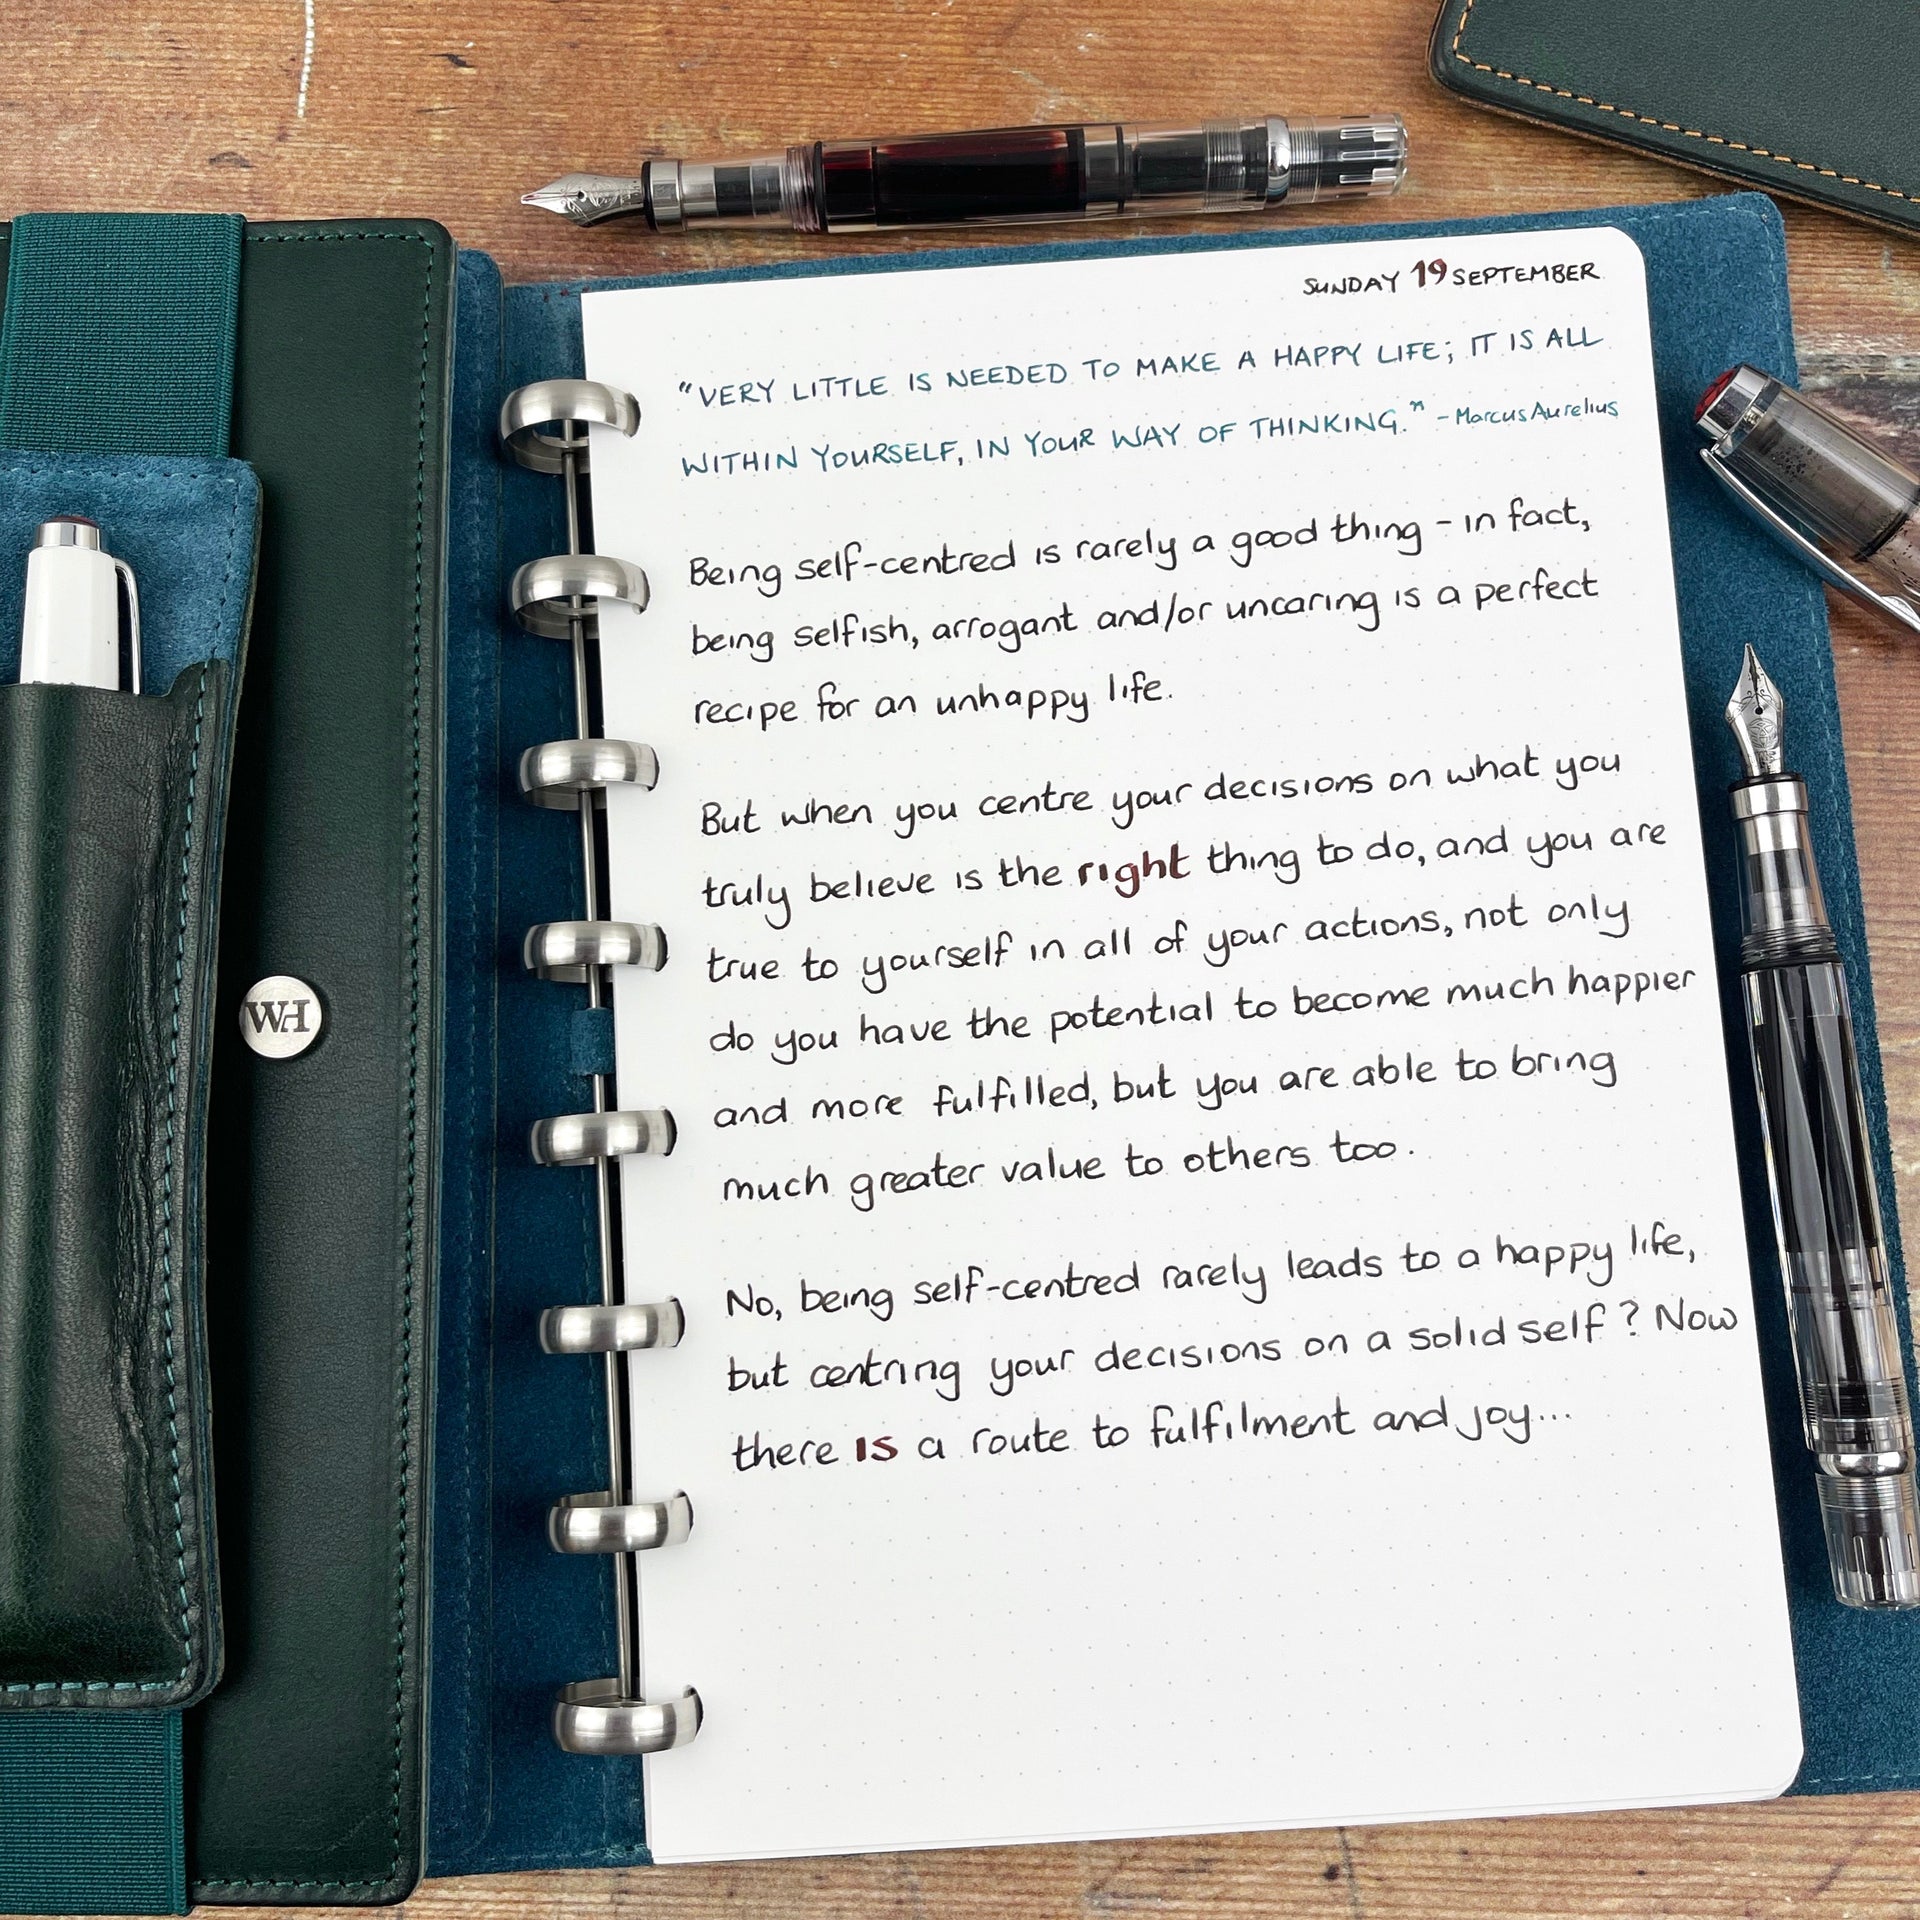 SUNDAY 19 SEPTEMBER
"VERY LITTLE IS NEEDED TO MAKE A HAPPY LIFE; IT IS ALL
WITHIN YOURSELF, IN YOUR WAY OF THINKING." - Marcus Aurelius
Being self-centred is rarely a good thing - in fact,
being selfish, arrogant and/or uncaring is a perfect
recipe for an unhappy life.
But when you centre your decisions on what you
truly believe is the right thing to do, and you are
true to yourself in all of your actions, not only
do you have the potential to become much happier
and more fulfilled, but you are able to bring
much greater value to others too.
No, being self-centred rarely leads to a happy life,
but centring your decisions on a solid self? Now
there is a route to fulfilment and joy...
WH